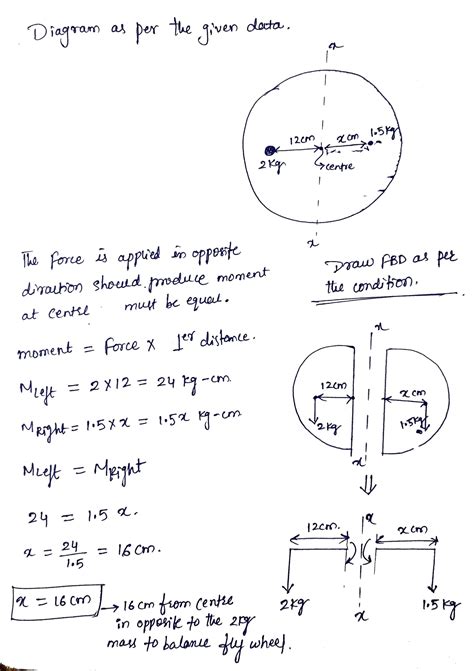 Diagram as per the given data.
x
12cm
x cm
1.5kg
2kg
centre
x
The force is applied in opposite
diraction should produce moment
at centre must be equal.
Draw FBD as per
the condition.
moment = Force × 1er distance.
M Left = 2 × 12 = 24 kg-cm
M Right = 1.5 × x = 1.5x kg-cm
x
12cm
x cm
2kg
1.5kg
x
MLeft = MRight
24 = 1.5 x.
x = 24/1.5 = 16 cm.
12cm.
x
x cm
2kg
x
1.5kg
x = 16 cm → 16 cm from centre
in opposite to the 2kg
mass to balance fly wheel.